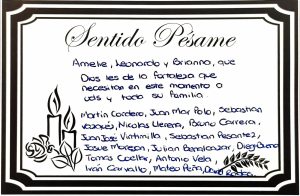 Sentido Pésame
Amelie, Leonardo y Brianna, que
Dios les de la fortaleza que
necesitan en este momento a
uds y toda su familia.
Martín Cordero, Juan Mar Polo, Sebastian
Vazquez, Nicolas Utrera, Bruno Carrera,
Juan José Vintimilla, Sebastian Pesantez,
Josue Morejon, Julian Benalcazar, Diego Bueno
Tomas Cuellar, Antonio Vela,
Ivan Carvallo, Mateo Peña, David